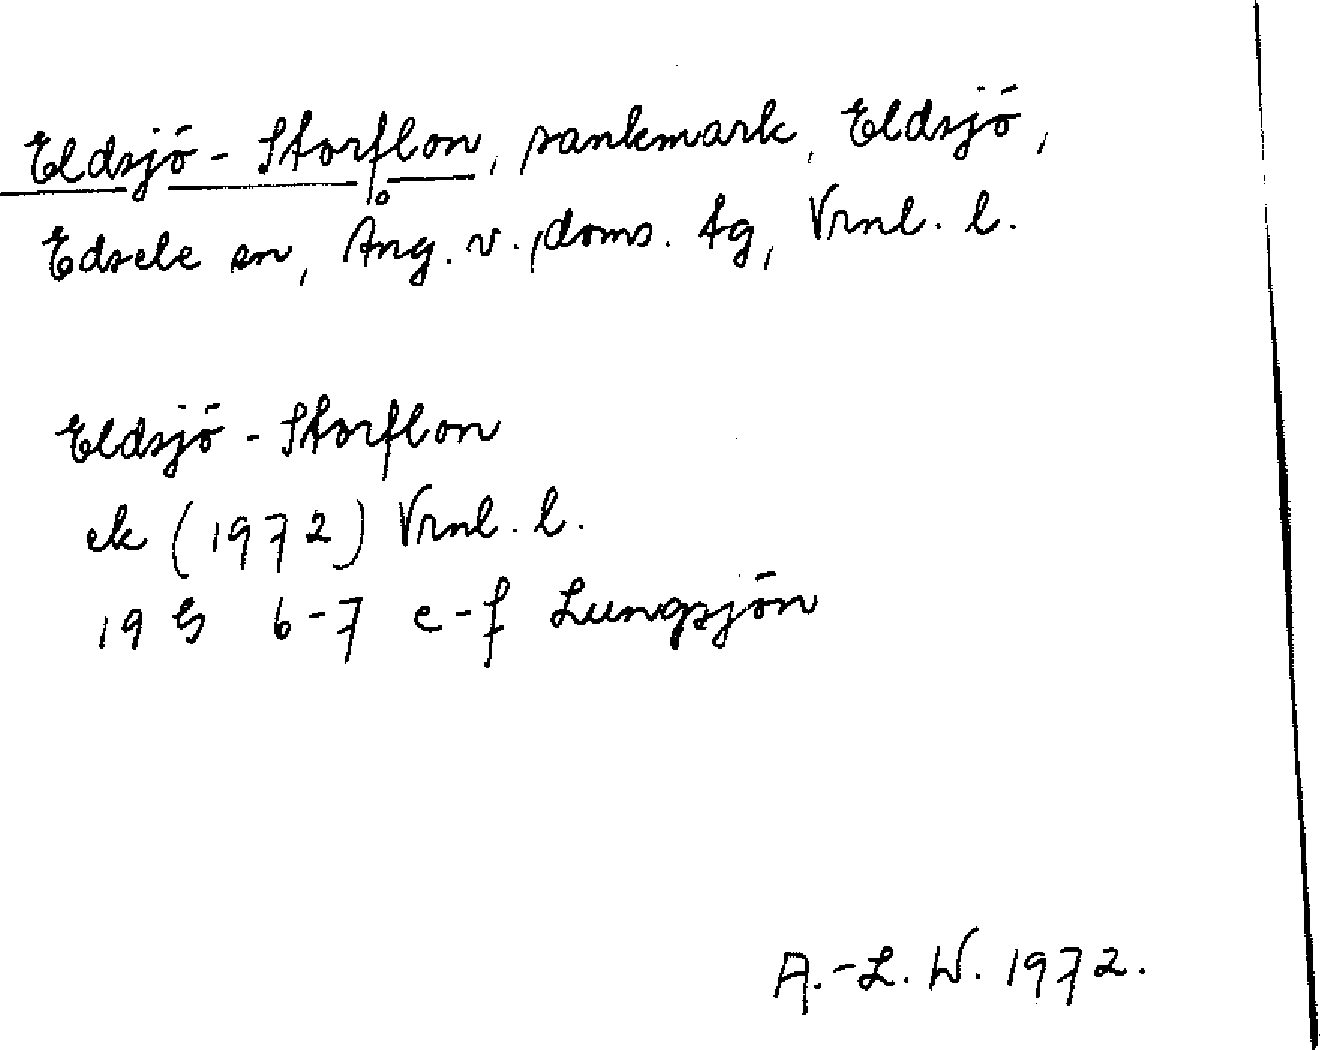 Eldsjö-Storflon, sankmark, Eldsjö,
Edsele sn, Ång. v., doms. tg, Vrnl. l.
Eldsjö-Storflon
ek (1972) Vrnl. l.
19 G 6-7 e-f Lungsjön
A.-L. W. 1972.